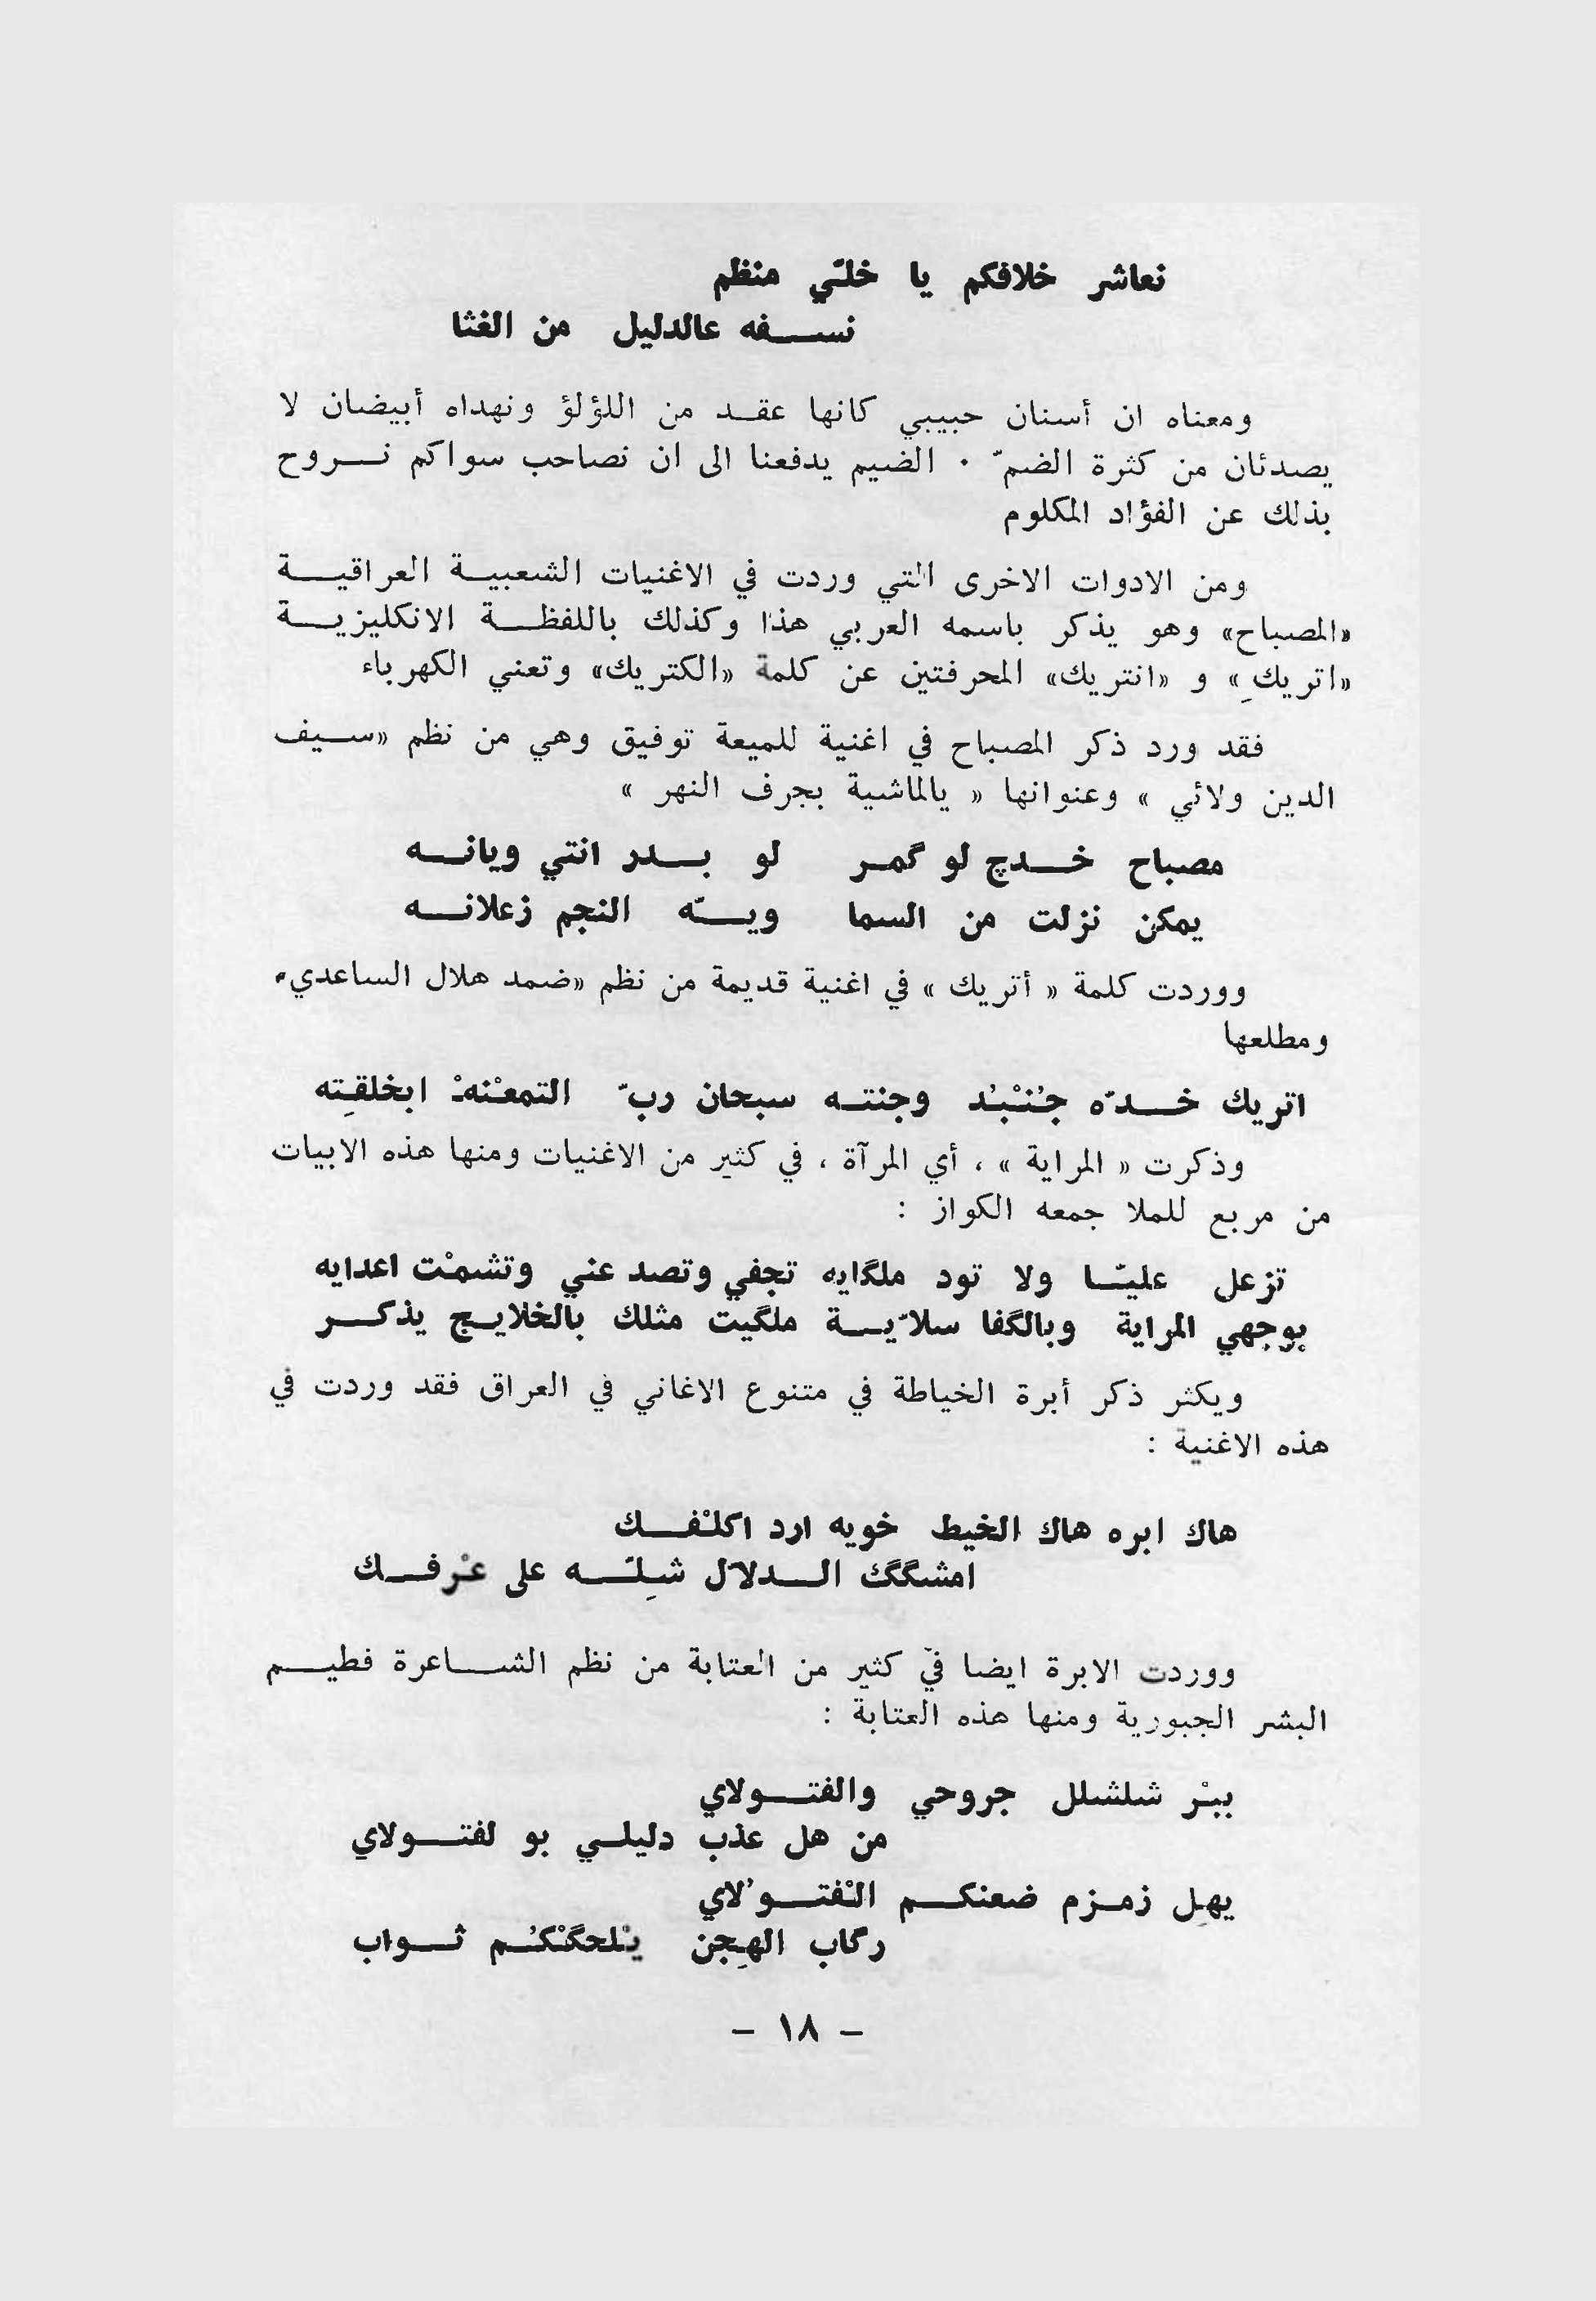 نعاشر خلافكم يا خلّي منظم
نسفه عالدليل من الغثا
ومعناه ان أسنان حبيبي كانها عقد من اللؤلؤ ونهداه أبيضان لا
يصدئان من كثرة الضمّ ٠ الضيم يدفعنا الى ان نصاحب سواكم نروح
بذلك عن الفؤاد المكلوم
ومن الادوات الاخرى التي وردت في الاغنيات الشعبية العراقية
«المصباح» وهو يذكر باسمه العربي هذا وكذلك باللفظة الانكليزية
«اتريكِ» و «انتريك» المحرفتين عن كلمة «الكتريك» وتعني الكهرباء
فقد ورد ذكر المصباح في اغنية للميعة توفيق وهي من نظم «سيف
الدين ولائي » وعنوانها « يالماشية بجرف النهر »
مصباح خدچ لو گمر لو بدر انتي ويانه
يمكن نزلت من السما ويّه النجم زعلانه
ووردت كلمة « أتريك » في اغنية قديمة من نظم «ضمد هلال الساعدي»
ومطلعها
اتريك خدّه جُنْبُد وجنته سبحان ربّ التمعْنهْ ابخلقِته
وذكرت « المراية » ، أي المرآة ، في كثير من الاغنيات ومنها هذه الابيات
من مربع للملا جمعه الكواز :
تزعل عليّا ولا تود ملگايه تجفي وتصد عني وتشمْت اعدايه
بوجهي المراية وبالگفا سلاّية ملگيت مثلك بالخلايج يذكر
ويكثر ذكر أبرة الخياطة في متنوع الاغاني في العراق فقد وردت في
هذه الاغنية :
هاك ابره هاك الخيط خويه ارد اكلْفك
امشگگ الدلال شِلّه على عرْفك
ووردت الابرة ايضا في كثير من العتابة من نظم الشاعرة فطيم
البشر الجبورية ومنها هذه العتابة :
ببْر شلشلل جروحي والفتولاي
من هل عذب دليلي بو لفتولاي
يهل زمزم ضعنكم الْفتوْلاي
رگاب الهِجن يْلحگْكُم ثواب
– ١٨ –